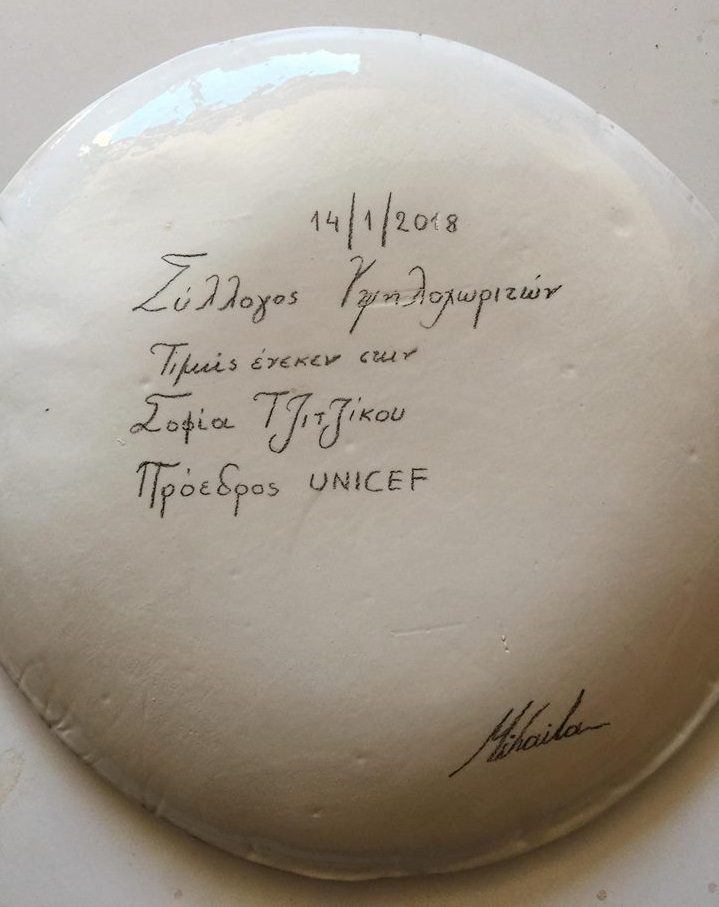 14/1/2018
Σύλλογος Υψηλοχωριτών
Τιμής ένεκεν στην
Σοφία Τζιτζίκου
Πρόεδρος UNICEF
Mihaila